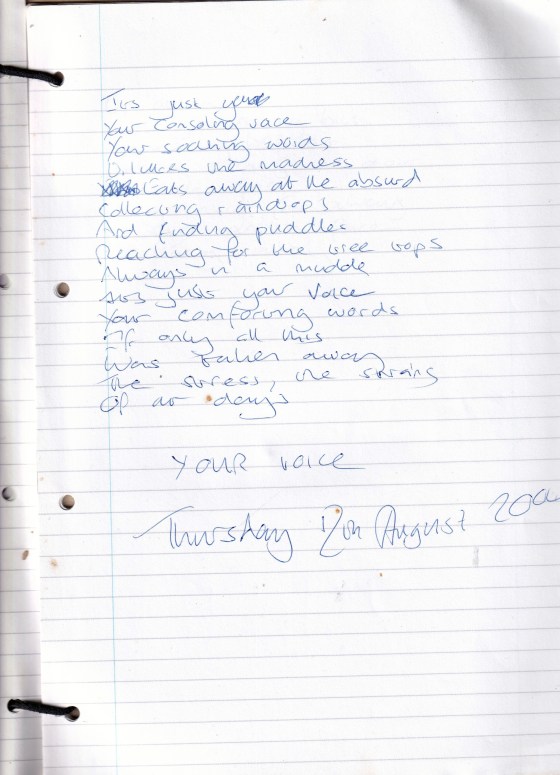 It's just your
Your consoling voice
Your soothing words
Dilutes the madness
Eats away at the absurd
Collecting raindrops
And finding puddles
Reaching for the tree tops
Always in a muddle
It's just your voice
Your comforting words
If only all this
Was taken away
The stress, the strains
Of our days
YOUR voice
Thursday 12th August